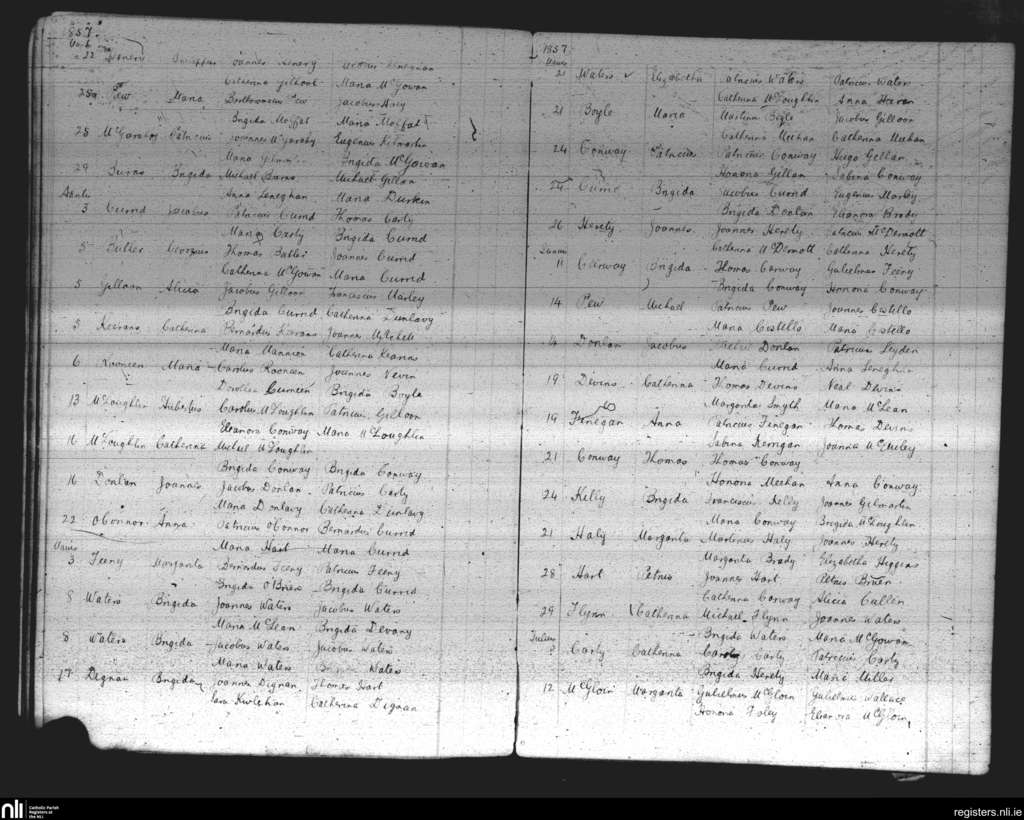 1857
22 Henery Joannes Henery
Catherina Gilhool Maria McGowan
25 Pew Maria Bartholomeus Pew Jacobus
Brigida Moffat Maria Moffat
28 McGaraby Patricius Joannes McGaraby Eugenius Kilmartin
Maria Brigida McGowan
29 Burns Brigida Michael Burns Michael Gillan
Anna Leneghan Maria Durkin
Aprilis
3 Currid Jacobus Patricius Currid Thomas Carty
Maria Carty Brigida Currid
5 Butler Georgius Thomas Butler Joannes Currid
Catherina McGowan Maria Currid
5 Gilloon Alicia Jacobus Gilloon Franciscus Marley
Brigida Currid Catherina Dunlavy
5 Keirans Catherina Bernardus Keirans Joannes Mitchell
Maria Mannion Catherina Keanns
6 Rooneen Maria Carolus Rooneen Joannes Nevin
Dorothea Curneen Brigida Boyle
13 McLoughlin Hubertus Carolus McLoughlin Patricius Gilloon
Eleanora Conway Maria McLoughlin
16 McLoughlin Catherina Michael McLoughlin
Brigida Conway Brigida Conway
16 Donlan Joannes Jacobus Donlan Patricius Carty
Maria Donlavy Catherina Dunlavy
22 O'Connor Anna Patricius O'Connor Bernardus Currid
Maria Hart Maria Currid
3 Feeny Margarita Bernardus Feeny Patricius Feeny
Brigida O'Brien Brigida Currid
8 Waters Brigida Joannes Waters Jacobus Waters
Maria McLean Brigida Devany
8 Waters Brigida Jacobus Waters Jacobus Waters
Maria Waters Waters
17 Dignan Brigida Joannes Dignan Thomas Hart
Sara Catherina Dignan
1857
21 Waters Elizabetha Patricius Waters Patricius Waters
Catherina McLoughlin Anna Haran
21 Boyle Maria Martinus Boyle Jacobus Gilloon
Catherina Meehan Catherina Meehan
24 Conway Patricius Patricius Conway Hugo Gillan
Honora Gillan Sabina Conway
24 Currid Brigida Jacobus Currid Eugenius Marley
Brigida Donlan Eleanora Brady
26 Herety Joannes Joannes Herety Patricius McDermott
Catherina McDermott Catherina Herety
Junius
11 Conway Brigida Thomas Conway Gulielmus Feeny
Brigida Conway Honora Conway
14 Pew Michael Patricius Pew Joannes Costello
Maria Costello Maria Costello
Donlan Jacobus Donlan Patricius Leyden
Maria Currid Anna Leneghan
19 Devins Catherina Thomas Devins Neal Devins
Margarita Smyth Maria McLean
19 Finegan Anna Patricius Finegan Thomas Devins
Sabina Kerrigan Joanna
21 Conway Thomas Thomas Conway
Honora Meehan Anna Conway
24 Kelly Brigida Franciscus Kelly Joannes Gilmartin
Maria Conway Brigida McLoughlin
21 Haly Margarita Martinus Haly Joannes Herety
Margarita Brady Elizabetha Higgins
28 Hart Petrus Joannes Hart Petrus Bruen
Catherina Conway Alicia Cullen
29 Flynn Catherina Michael Flynn Joannes Waters
Brigida Waters Maria McGowan
Julius
Carty Catherina Carty Patricius Carty
Brigida Herety Maria Millar
12 McGloin Margarita Gulielmus McGloin Gulielmus Wallace
Honora Foley Eleanora McGloin
nli Catholic Parish Registers at the NLI
registers.nli.ie